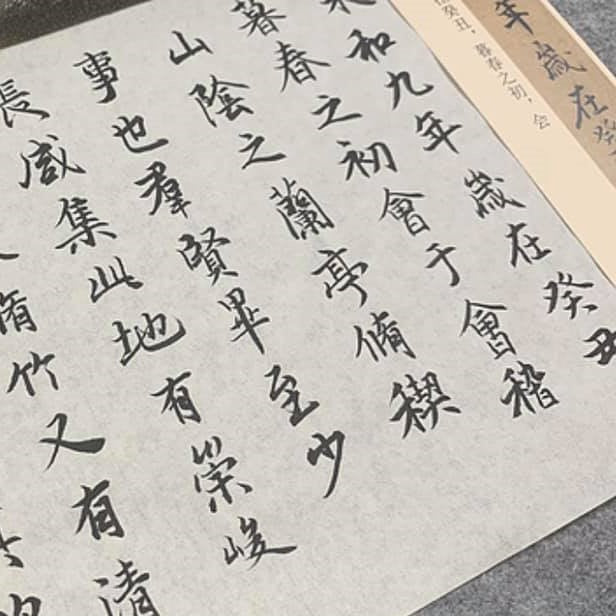 年歲在癸
癸丑,暮春之初,会
和九年歲在癸丑
暮春之初會于會稽
山陰之蘭亭脩禊
事也羣賢畢至少
長咸集此地有崇峻
脩竹又有清